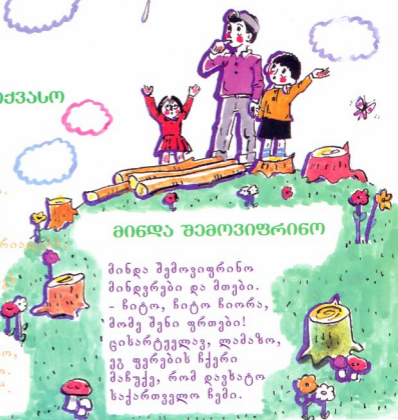 იქვასო
მინდა შემოვიფრინო
მინდა შემოვიფრინო
მინდვრები და მთები.
- ჩიტო, ჩიტო ჩიორა,
მომე შენი ფრთები!
ცისარტყელავ, ლამაზო,
ეგ ფერების ჩქერი
მაჩუქე, რომ დავხატო
საქართველო ჩემი.